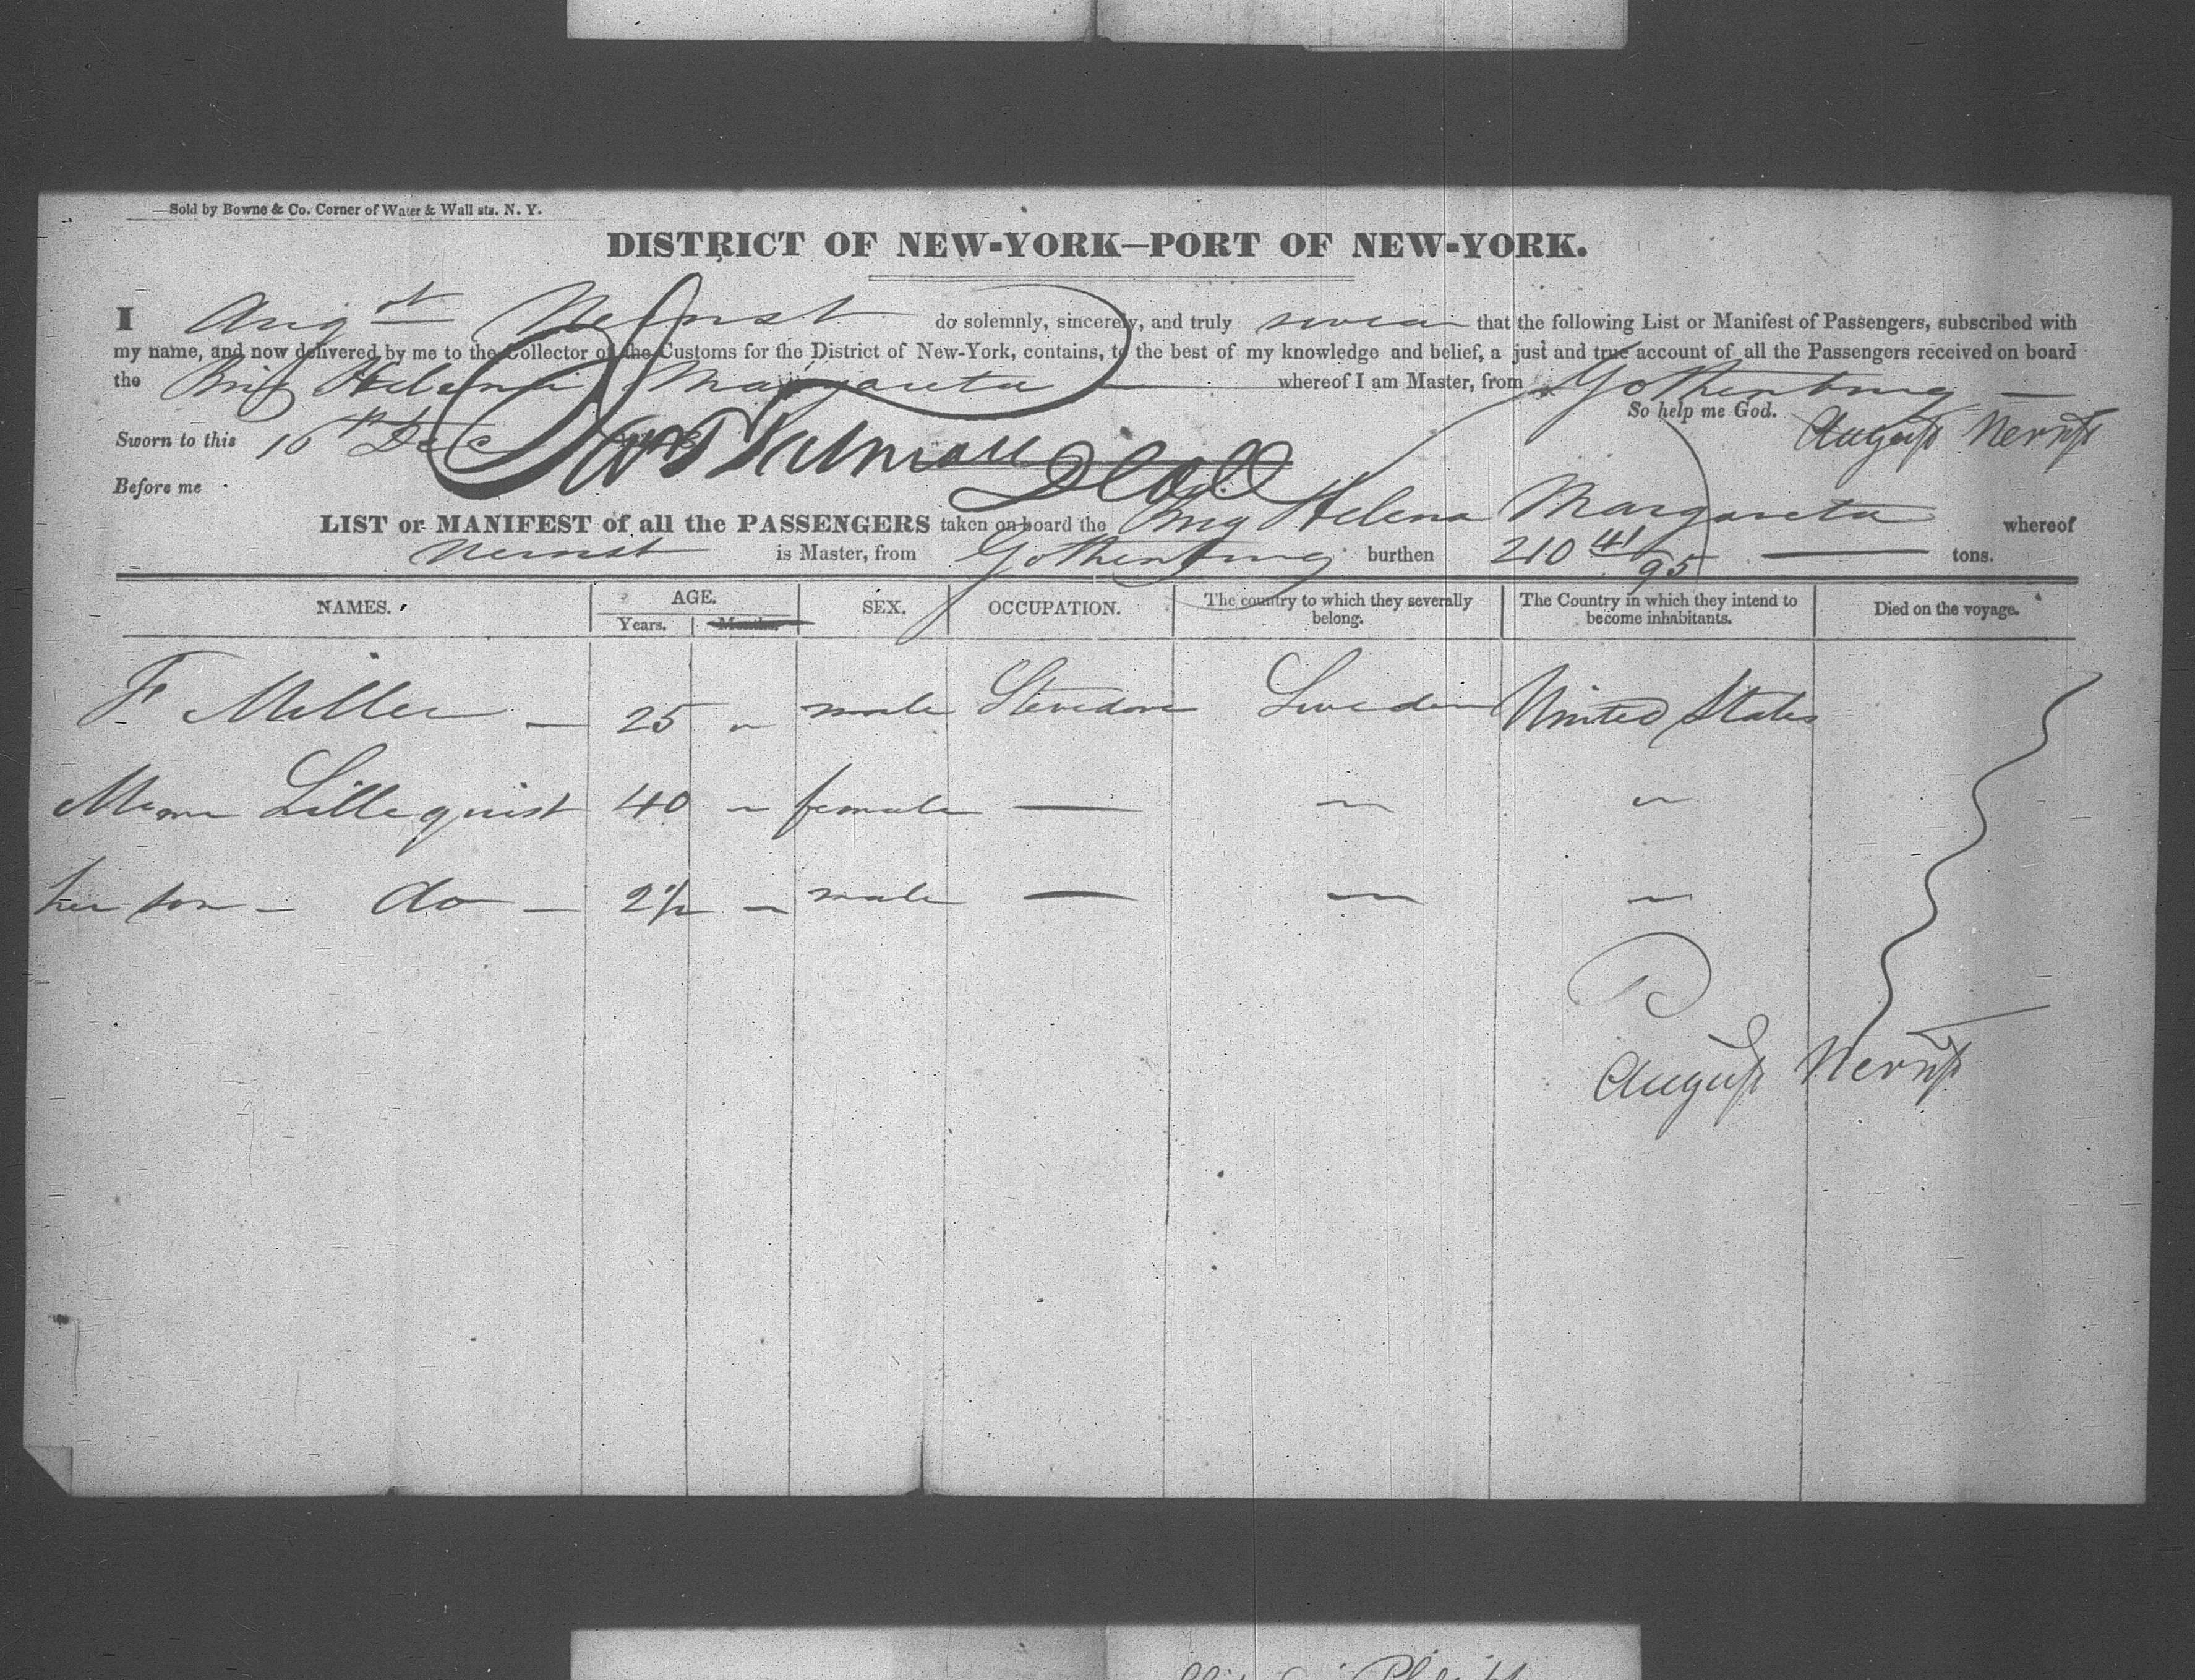 Sold by Bowne & Co. Corner of Water & Wall sts. N. Y.
DISTRICT OF NEW-YORK—PORT OF NEW-YORK.
I Augst Nernst do solemnly, sincerely, and truly swear that the following List or Manifest of Passengers, subscribed with
my name, and now delivered by me to the Collector of the Customs for the District of New-York, contains, to the best of my knowledge and belief, a just and true account of all the Passengers received on board
the Brig Helena Margareta — whereof I am Master, from Gothenburg —
So help me God. August Nernst
Sworn to this 16th Dec
Before me
LIST or MANIFEST of all the PASSENGERS taken on board the Brig Helena Margareta whereof
Nernst is Master, from Gothenburg burthen 210 41/95 — tons.
NAMES. AGE. SEX. OCCUPATION. The country to which they severally belong. The Country in which they intend to become inhabitants. Died on the voyage.
Years. Months.
F. Miller — 25 " male Stevedore Sweden United States
Lillequist 40 " female — " "
her son — do — 2 1/2 " male — " "
August Nernst